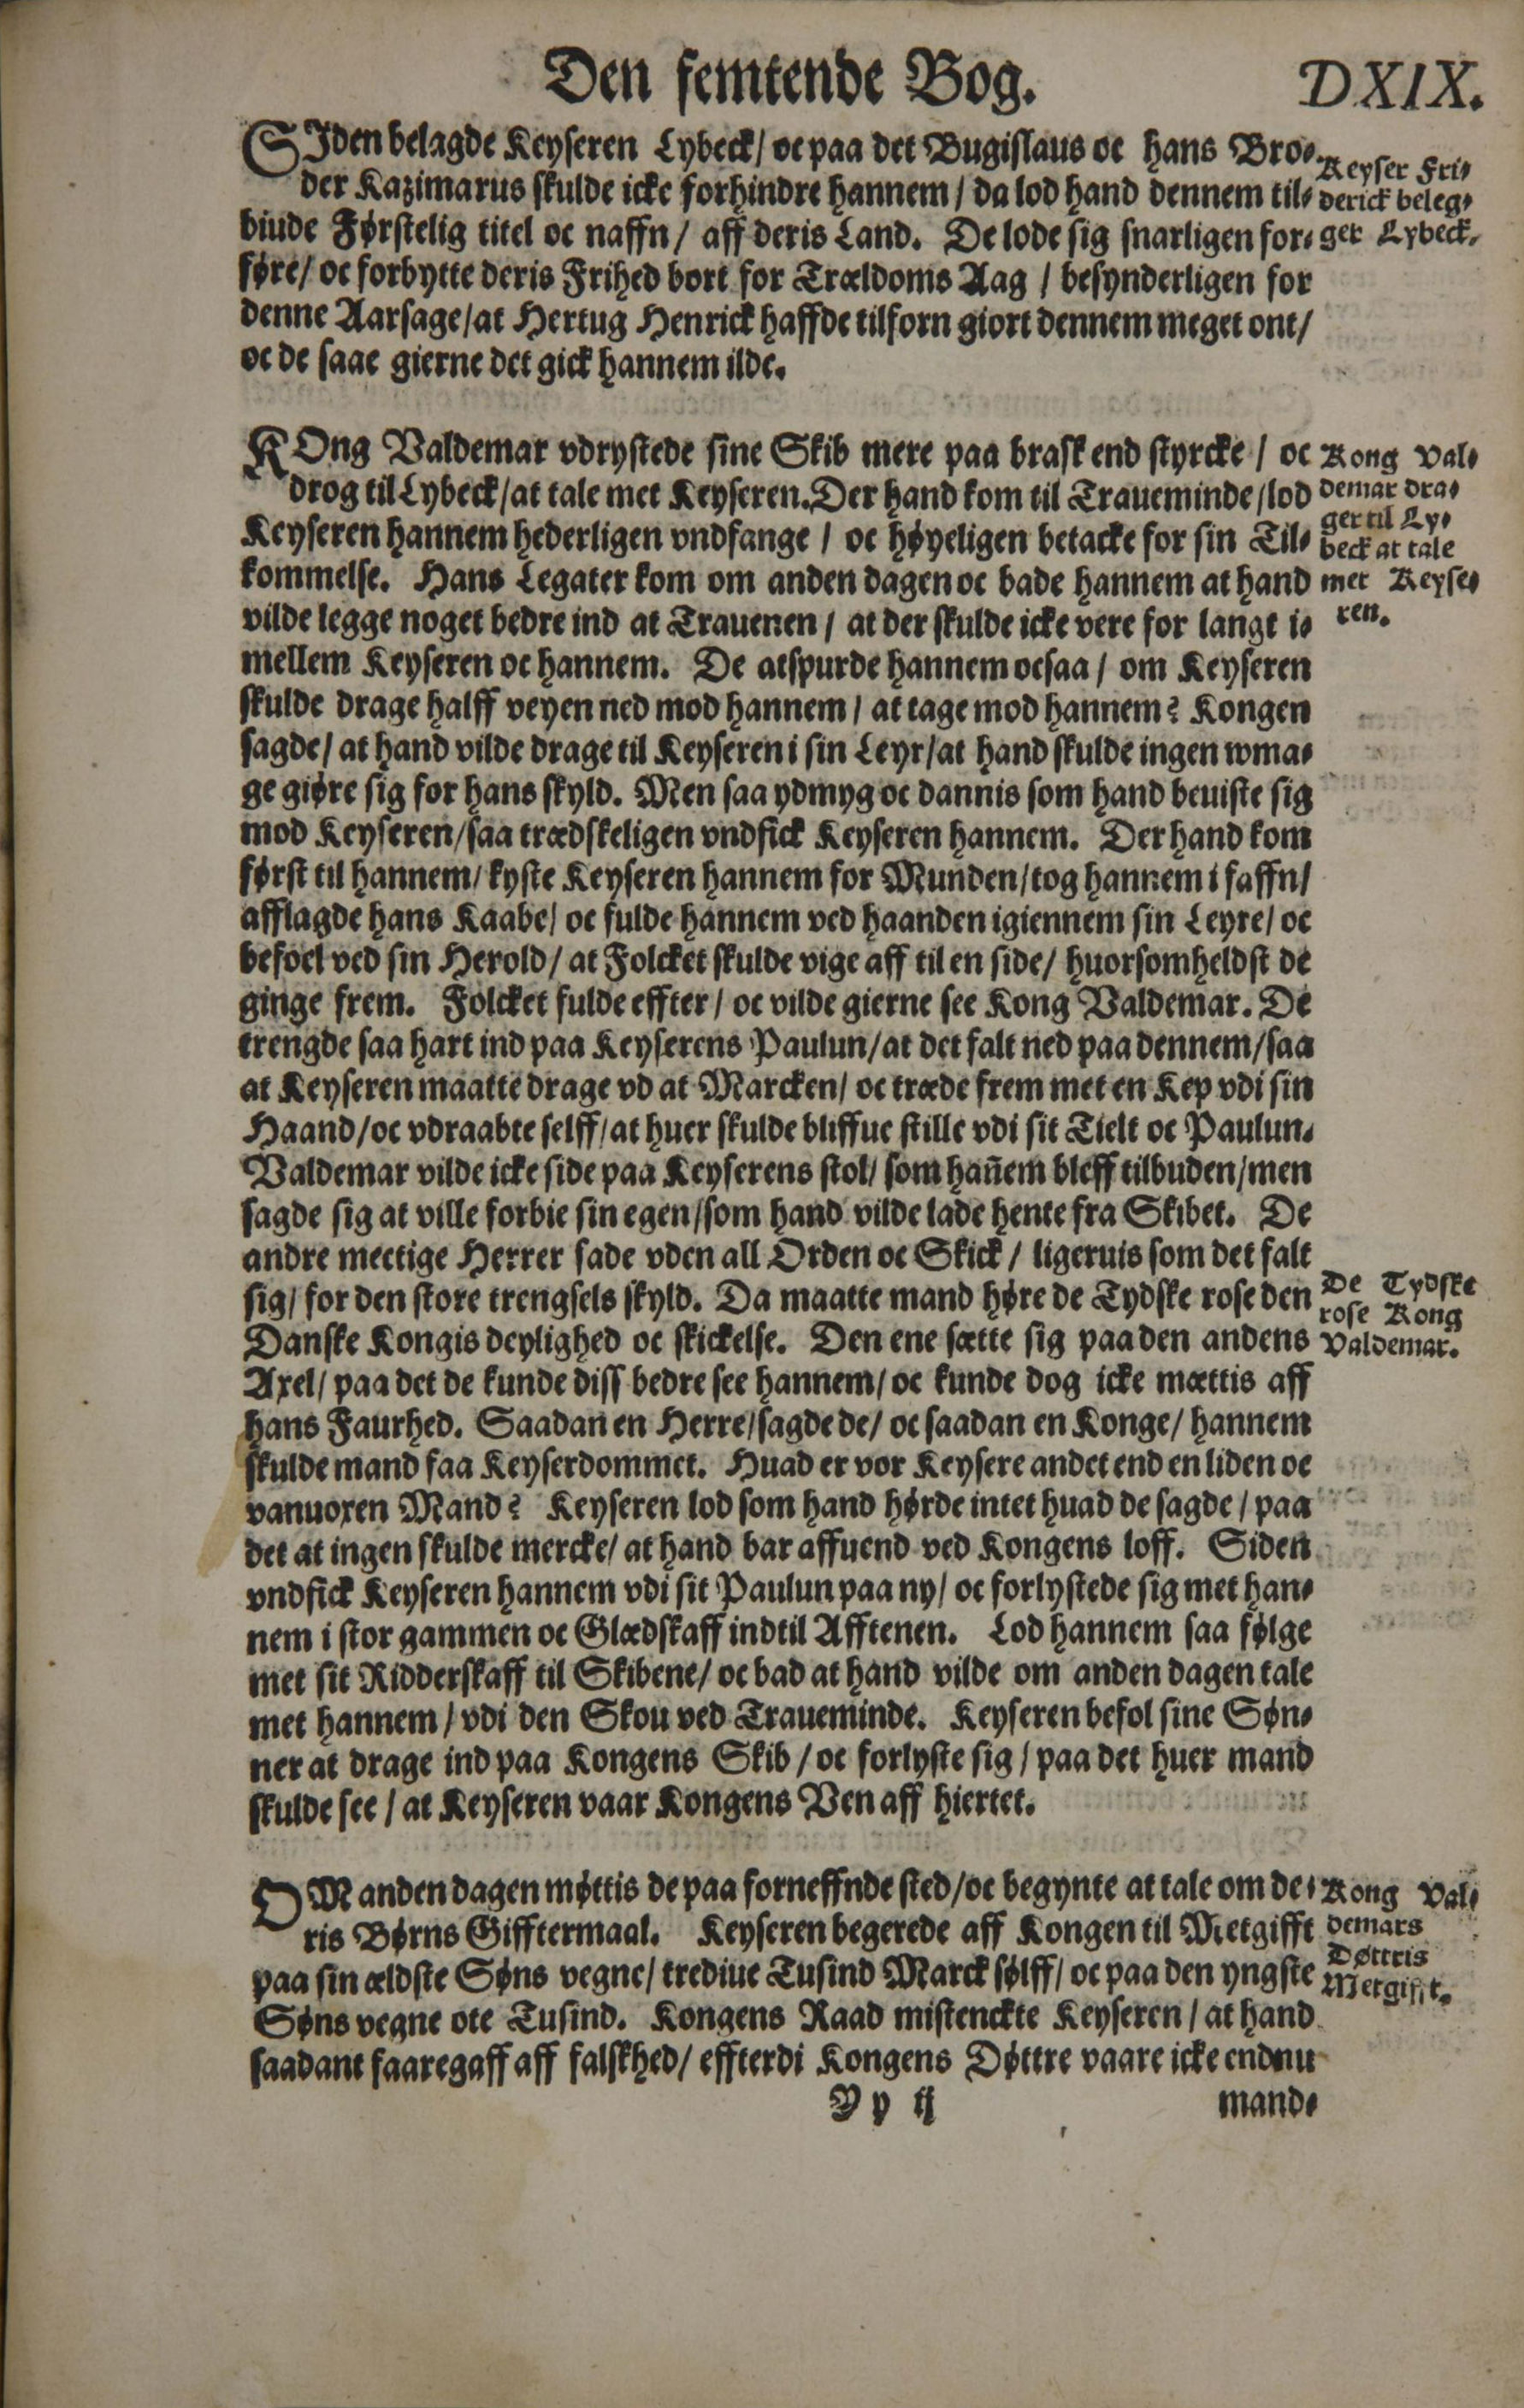 Den femtende Bog. DXIX.
SIden belagde Keyseren Lybeck/ oc paa det Bugislaus oc hans Bro-
der Kazimarus skulde icke forhindre hannem / da lod hand dennem til-
biude Førstelig titel oc naffn/ aff deris Land. De lode sig snarligen for-
føre/ oc forbytte deris Frihed bort for Trældoms Aag / besynderligen for
denne Aarsage/at Hertug Henrick haffde tilforn giort dennem meget ont/
oc de saae gierne det gick hannem ilde.
Keyser Fri-
derick beleg-
ger Lybeck.
KOng Valdemar vdrystede sine Skib mere paa brask end styrcke / oc
drog til Lybeck/at tale met Keyseren. Der hand kom til Traueminde/lod
Keyseren hannem hederligen vndfange / oc høyeligen betacke for sin Til-
kommelse. Hans Legater kom om anden dagen oc bade hannem at hand
vilde legge noget bedre ind at Trauenen / at der skulde icke vere for langt i-
mellem Keyseren oc hannem. De atspurde hannem ocsaa / om Keyseren
skulde drage halff veyen ned mod hannem / at tage mod hannem? Kongen
sagde/ at hand vilde drage til Keyseren i sin Leyr/at hand skulde ingen wma-
ge giøre sig for hans skyld. Men saa ydmyg oc dannis som hand beuiste sig
mod Keyseren/saa trædskeligen vndfick Keyseren hannem. Der hand kom
først til hannem/ kyste Keyseren hannem for Munden/tog hannem i faffn/
afflagde hans Kaabe/ oc fulde hannem ved haanden igiennem sin Leyre/ oc
befoel ved sin Herold/ at Folcket skulde vige aff til en side/ huorsomheldst de
ginge frem. Folcket fulde effter / oc vilde gierne see Kong Valdemar. De
trengde saa hart ind paa Keyserens Paulun/at det falt ned paa dennem/saa
at Keyseren maatte drage vd at Marcken/ oc træde frem met en Kep vdi sin
Haand/oc vdraabte selff/at huer skulde bliffue stille vdi sit Tielt oc Paulun.
Valdemar vilde icke side paa Keyserens stol/ som hañem bleff tilbuden/men
sagde sig at ville forbie sin egen/som hand vilde lade hente fra Skibet. De
andre mectige Herrer sade vden all Orden oc Skick / ligeruis som det falt
sig/ for den store trengsels skyld. Da maatte mand høre de Tydske rose den
Danske Kongis deylighed oc skickelse. Den ene sætte sig paa den andens
Axel/ paa det de kunde diss bedre see hannem/ oc kunde dog icke mættis aff
hans Faurhed. Saadan en Herre/sagde de/ oc saadan en Konge/ hannem
skulde mand faa Keyserdommet. Huad er vor Keysere andet end en liden oc
vanuoxen Mand? Keyseren lod som hand hørde intet huad de sagde / paa
det at ingen skulde mercke/ at hand bar affuend ved Kongens loff. Siden
vndfick Keyseren hannem vdi sit Paulun paa ny/ oc forlystede sig met han-
nem i stor gammen oc Glædskaff indtil Afftenen. Lod hannem saa følge
met sit Ridderskaff til Skibene/ oc bad at hand vilde om anden dagen tale
met hannem / vdi den Skou ved Traueminde. Keyseren befol sine Søn-
ner at drage ind paa Kongens Skib / oc forlyste sig / paa det huer mand
skulde see / at Keyseren vaar Kongens Ven aff hiertet.
Kong Val-
demar dra-
ger til Ly-
beck at tale
met Keyse-
ren.
De Tydske
rose Kong
Valdemar.
OM anden dagen møttis de paa forneffnde sted/oc begynte at tale om de-
ris Børns Gifftermaal. Keyseren begerede aff Kongen til Metgifft
paa sin ældste Søns vegne/ trediue Tusind Marck sølff/ oc paa den yngste
Søns vegne ote Tusind. Kongens Raad mistenckte Keyseren / at hand
saadant faaregaff aff falskhed/ effterdi Kongens Døttre vaare icke endnu
Kong Val-
demars
Døttris
Metgifft.
Y y ij mand-